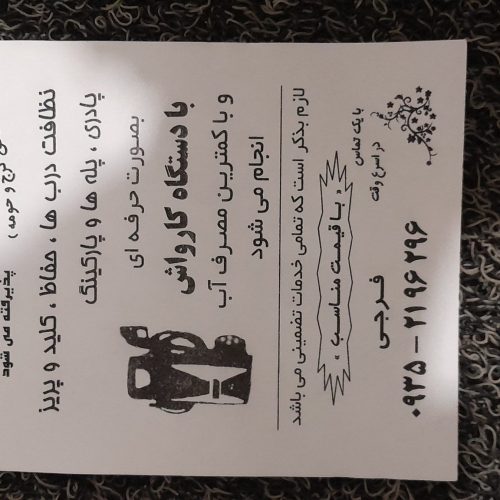 کرج و حومه )
پذیرفته می شود
نظافت درب ها ، حفاظ ، کلید و پریز
پادری ، پله ها و پارکینگ
بصورت حرفه ای
با دستگاه کارواش
و با کمترین مصرف آب
انجام می شود
لازم بذکر است که تمامی خدمات تضمینی می باشد
، با قیمت مناسب ،
با یک تماس
در اسرع وقت
فرجی
۰۹۳۵ – ۲۱۹۶۲۹۶